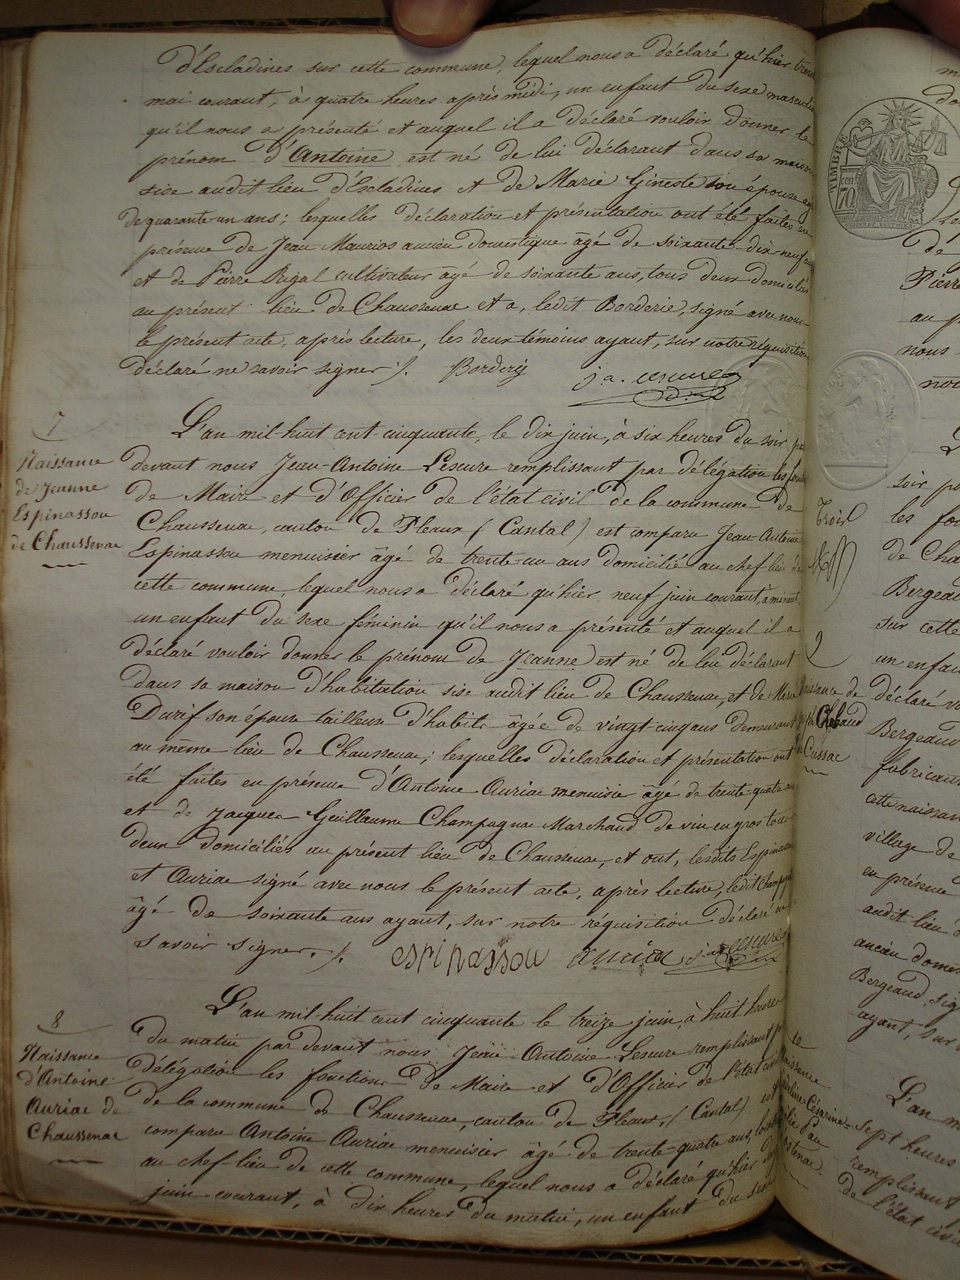 d'Escladines sur cette commune, lequel nous a déclaré qu'hier trois
mai courant, à quatre heures après midi, un enfant du sexe masculin
qu'il nous a présenté et auquel il a déclaré vouloir donner le
prénom d'Antoine est né de lui déclarant dans sa maison
sise audit lieu d'Escladines et de Marie Gineste son épouse
de quarante un ans; lesquelles déclaration et présentation ont été faites en
présence de Jean Maurios ancien domestique âgé de soixante dix neuf
et de Pierre Rigal cultivateur âgé de soixante ans, tous deux domiciliés
au présent lieu de Chaussenac et a, ledit Borderie, signé avec nous
le présent acte, après lecture, les deux témoins ayant, sur notre réquisition
déclaré ne savoir signer ./. Borderie j a. Lescure
7
Naissance
de Jeanne
Espinassou
de Chaussenac
L'an mil-huit cent-cinquante, le dix juin, à six heures du soir, par
devant nous Jean-Antoine Lescure remplissant par délégation les fonctions
de Maire et d'Officier de l'état civil de la commune de
Chaussenac, canton de Pleaux (Cantal) est comparu Jean-Antoine
Espinassou menuisier âgé de trente-un ans domicilié au chef lieu de
cette commune, lequel nous a déclaré qu'hier, neuf juin courant, à minuit,
un enfant du sexe féminin qu'il nous a présenté et auquel il a
déclaré vouloir donner le prénom de Jeanne est né de lui déclarant
dans sa maison d'habitation sise audit lieu de Chaussenac, et de Marie
Durif son épouse tailleuse d'habits âgée de vingt cinq ans demeurant
au même lieu de Chaussenac; lesquelles déclaration et présentation ont
été faites en présence d'Antoine Auriac menuisier âgé de trente-quatre ans
et de Jacques Guillaume Champagnac Marchand de vin en gros tous
deux domiciliés au présent lieu de Chaussenac, et ont, lesdits Espinassou
et Auriac signé avec nous le présent acte, après lecture, ledit Champagnac
âgé de soixante ans ayant, sur notre réquisition déclaré ne
savoir signer. ./. espinassou auriac j a. Lescure
8
Naissance
d'Antoine
Auriac de
Chaussenac
L'an mil-huit cent cinquante le treize juin, à huit heures
du matin par devant nous Jean Antoine Lescure remplissant par
délégation les fonctions de Maire et d'Officier de l'état civil
de la commune de Chaussenac, canton de Pleaux, (Cantal) est
comparu Antoine Auriac menuisier âgé de trente-quatre ans, domicilié
au chef lieu de cette commune, lequel nous a déclaré qu'hier
juin courant, à dix heures du matin, un enfant du sexe
TIMBRE
70
de
Pierre
au p
nous
soir p
les fo
de Cha
Bergeaud
sur cette
un enfan
déclaré v
Bergeaud
fabrican
cette naissan
village de
en présence
audit lieu
ancien domes
Bergeaud, sig
ayant, sur
L'an m
sept heures
remplissant
de l'état civil